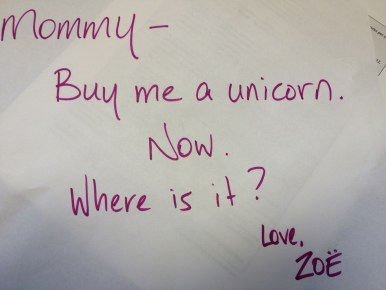 Mommy –
Buy me a unicorn.
Now.
Where is it?
Love,
ZOË